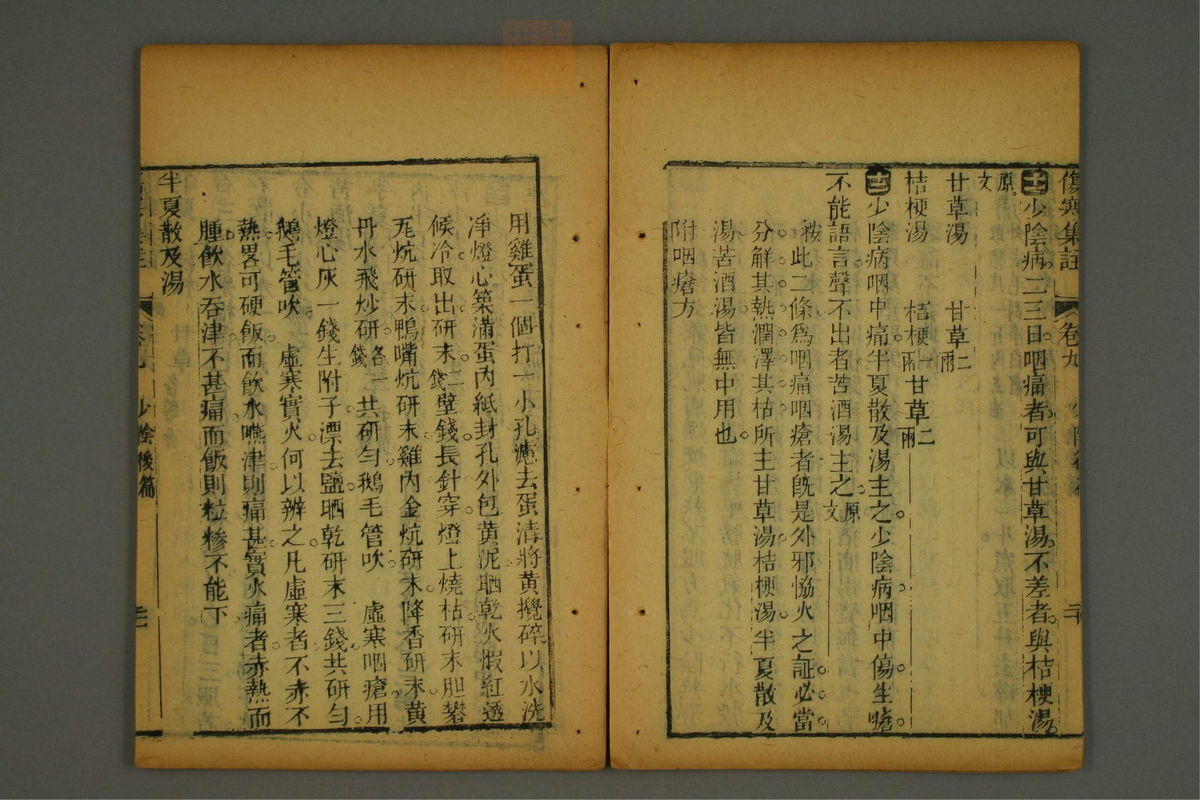 傷寒集註 卷九
十一 少陰病二三日咽痛者可與甘草湯不差者與桔梗湯
原文
甘草湯 甘草二兩
桔梗湯 桔梗一兩甘草二兩
十二 少陰病咽中痛半夏散及湯主之少陰病咽中傷生瘡
不能語言聲不出者苦酒湯主之原文
按此二條為咽痛咽瘡者旣是外邪恊火之証必當
分解其熱潤澤其枯所主甘草湯桔梗湯半夏散及
湯苦酒湯皆無中用也
附咽瘡方
用雞蛋一個打一小孔濾去蛋清將黃攪碎以水洗
淨燈心築滿蛋內紙封孔外包黃泥晒乾火煆紅過
候冷取出研末二錢壁錢長針穿燈上燒枯研末胆礬
瓦炕研末鴨嘴炕研末雞內金炕研末降香研末黃
丹水飛炒研各一錢共研勻鵝毛管吹 虛寒咽瘡用
燈心灰一錢生附子漂去鹽晒乾研末三錢共研勻
鵝毛管吹 虛寒實火何以辨之凡虛寒者不赤不
熱畧可硬飯而飲水嚥津則痛甚實火痛者赤熱而
腫飲水吞津不甚痛而飯則粒糝不能下
半夏散及湯
少陰後篇